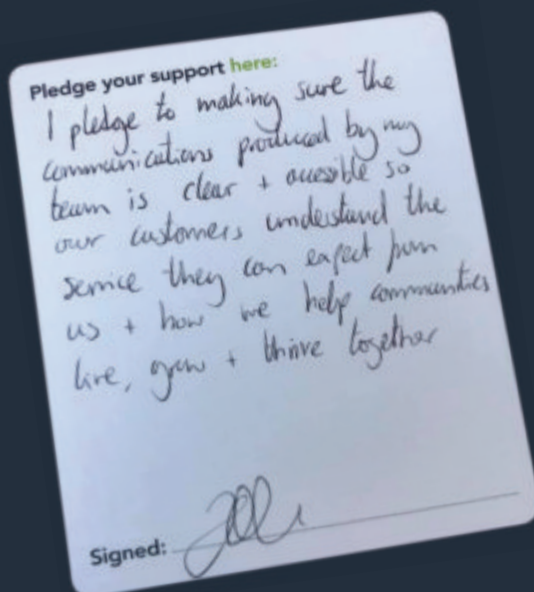 Pledge your support here:
I pledge to making sure the
communications produced by my
team is clear + accessible so
our customers understand the
service they can expect from
us + how we help communities
live, grow + thrive together
Signed: